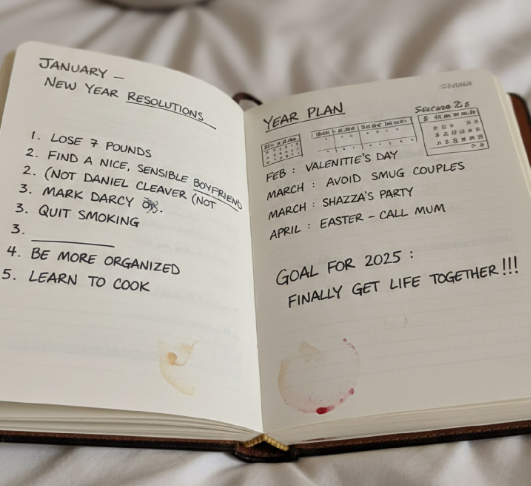 JANUARY –
NEW YEAR RESOLUTIONS
1. LOSE 7 POUNDS
2. FIND A NICE, SENSIBLE BOYFRIEND
2. (NOT DANIEL CLEAVER (NOT
3. MARK DARCY
3. QUIT SMOKING
3.
4. BE MORE ORGANIZED
5. LEARN TO COOK
YEAR PLAN
FEB : VALENITIE'S DAY
MARCH : AVOID SMUG COUPLES
MARCH : SHAZZA'S PARTY
APRIL : EASTER – CALL MUM
GOAL FOR 2025 :
FINALLY GET LIFE TOGETHER!!!